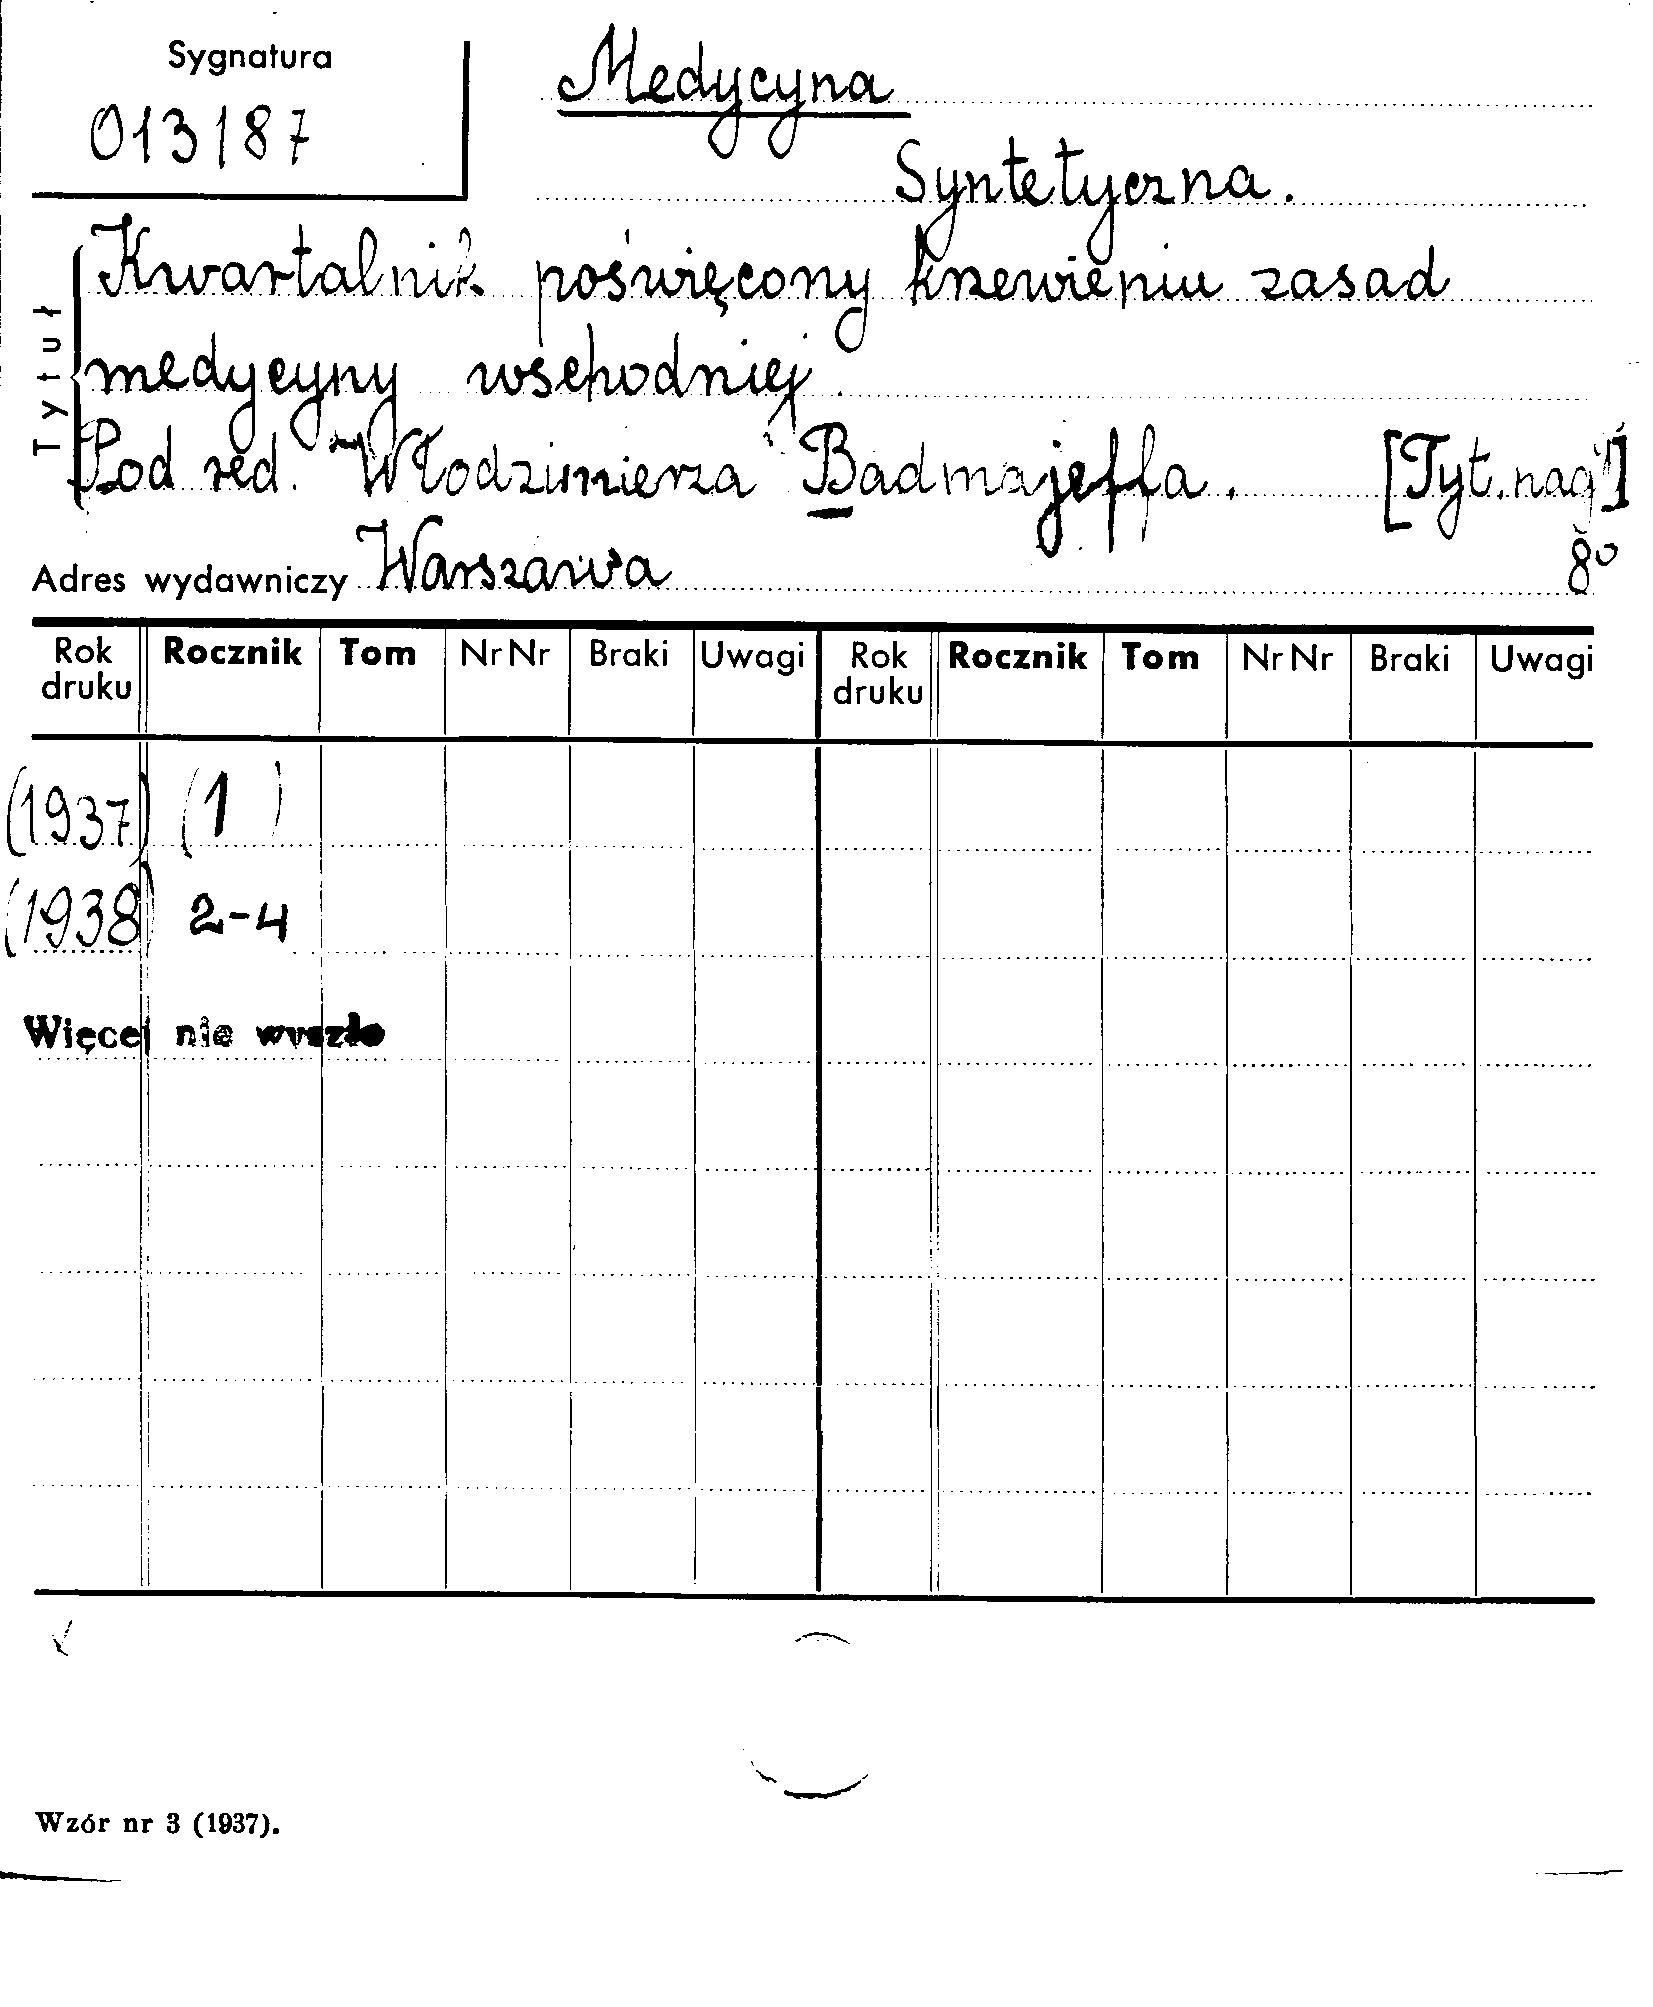 Sygnatura
013187
Medycyna
Syntetyczna.
Tytuł
Kwartalnik poświęcony krzewieniu zasad
medycyny wschodniej.
Pod red. Włodzimierza Badmajeffa. [Tyt. nagł]
Adres wydawniczy Warszawa 8°
Rok druku Rocznik Tom Nr Nr Braki Uwagi Rok druku Rocznik Tom Nr Nr Braki Uwagi
(1937) (1)
(1938) 2-4
Więcej nie wyszło
Wzór nr 3 (1937).